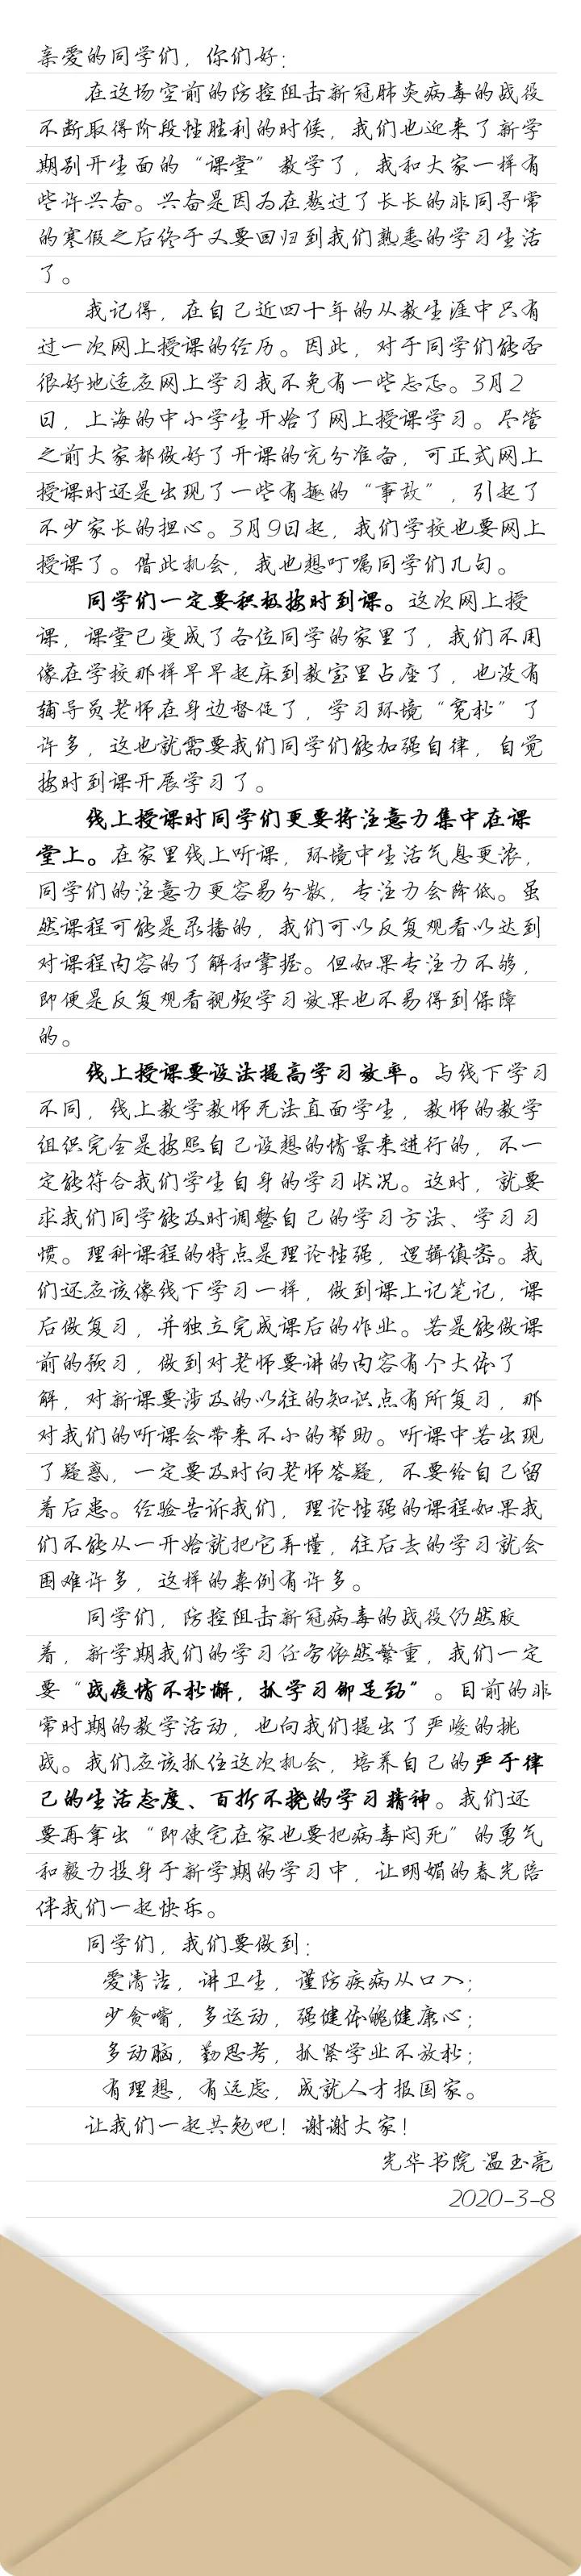 亲爱的同学们，你们好：
在这场空前的防控阻击新冠肺炎病毒的战役
不断取得阶段性胜利的时候，我们也迎来了新学
期别开生面的“课堂”教学了，我和大家一样有
些许兴奋。兴奋是因为在熬过了长长的非同寻常
的寒假之后终于又要回归到我们熟悉的学习生活
了。
我记得，在自己近四十年的从教生涯中只有
过一次网上授课的经历。因此，对于同学们能否
很好地适应网上学习我不免有一些忐忑。3月2
日，上海的中小学生开始了网上授课学习。尽管
之前大家都做好了开课的充分准备，可正式网上
授课时还是出现了一些有趣的“事故”，引起了
不少家长的担心。3月9日起，我们学校也要网上
授课了。借此机会，我也想叮嘱同学们几句。
同学们一定要积极按时到课。这次网上授
课，课堂已变成了各位同学的家里了，我们不用
像在学校那样早早起床到教室里占座了，也没有
辅导员老师在身边督促了，学习环境“宽松”了
许多，这也就需要我们同学们能加强自律，自觉
按时到课开展学习了。
线上授课时同学们更要将注意力集中在课
堂上。在家里线上听课，环境中生活气息更浓，
同学们的注意力更容易分散，专注力会降低。虽
然课程可能是录播的，我们可以反复观看以达到
对课程内容的了解和掌握。但如果专注力不够，
即便是反复观看视频学习效果也不易得到保障
的。
线上授课要设法提高学习效率。与线下学习
不同，线上教学教师无法直面学生，教师的教学
组织完全是按照自己设想的情景来进行的，不一
定能符合我们学生自身的学习状况。这时，就要
求我们同学能及时调整自己的学习方法、学习习
惯。理科课程的特点是理论性强，逻辑缜密。我
们还应该像线下学习一样，做到课上记笔记，课
后做复习，并独立完成课后的作业。若是能做课
前的预习，做到对老师要讲的内容有个大体了
解，对新课要涉及的以往的知识点有所复习，那
对我们的听课会带来不小的帮助。听课中若出现
了疑惑，一定要及时向老师答疑，不要给自己留
着后患。经验告诉我们，理论性强的课程如果我
们不能从一开始就把它弄懂，往后去的学习就会
困难许多，这样的案例有许多。
同学们，防控阻击新冠病毒的战役仍然胶
着，新学期我们的学习任务依然繁重，我们一定
要“战疫情不松懈，抓学习铆足劲”。目前的非
常时期的教学活动，也向我们提出了严峻的挑
战。我们应该抓住这次机会，培养自己的严于律
己的生活态度、百折不挠的学习精神。我们还
要再拿出“即使宅在家也要把病毒闷死”的勇气
和毅力投身于新学期的学习中，让明媚的春光陪
伴我们一起快乐。
同学们，我们要做到：
爱清洁，讲卫生，谨防疾病从口入；
少贪嘴，多运动，强健体魄健康心；
多动脑，勤思考，抓紧学业不放松；
有理想，有远虑，成就人才报国家。
让我们一起共勉吧！谢谢大家！
光华书院 温玉亮
2020-3-8